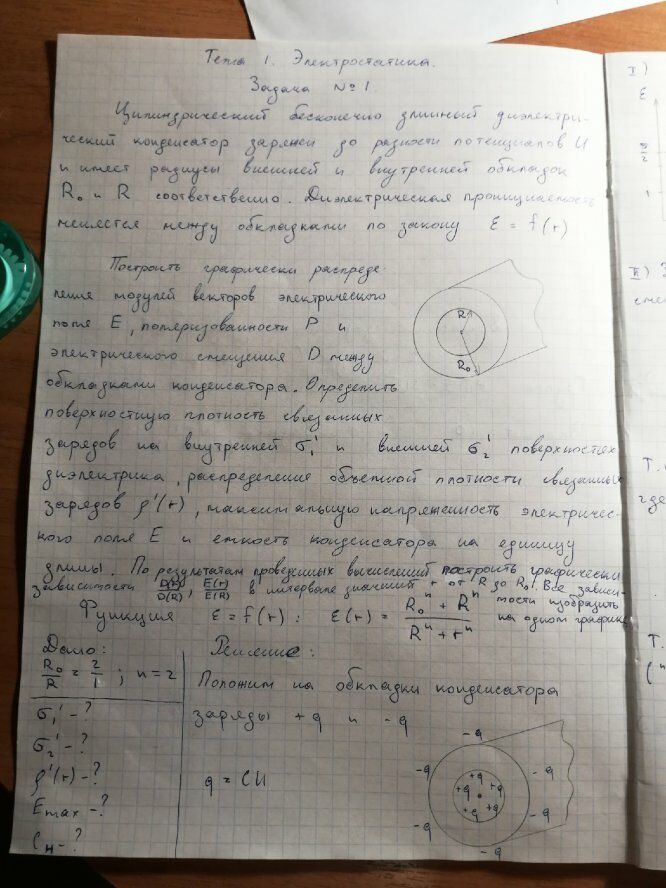 Тема 1. Электростатика.
Задача № 1.
Цилиндрический бесконечно длинный диэлектри-
ческий конденсатор заряжен до разности потенциалов U
и имеет радиусы внешней и внутренней обкладок
R₀ и R соответственно. Диэлектрическая проницаемость
меняется между обкладками по закону ε = f(r)
Построить графически распреде-
ление модулей векторов электрического
поля E, поляризованности P и
электрического смещения D между
обкладками конденсатора. Определить
поверхностную плотность связанных
зарядов на внутренней σ₁' и внешней σ₂' поверхностях
диэлектрика, распределение объемной плотности связанных
зарядов ρ'(r), максимальную напряженность электричес-
кого поля E и емкость конденсатора на единицу
длины. По результатам проведенных вычислений построить графически
зависимости D(r)/D(R), E(r)/E(R) в интервале значений r от R до R₀. Все зависи-
мости изобразить
на одном графике
Функция ε = f(r): ε(r) = (R₀ⁿ + Rⁿ)/(Rⁿ + rⁿ)
Дано:
R₀/R = 2/1; n = 2
σ₁' - ?
σ₂' - ?
ρ'(r) - ?
Emax - ?
Решение:
Положим на обкладки конденсатора
заряды +q и -q
q = CU
R
R₀
-q
-q
-q
-q
-q
-q
-q
-q
+q
+q
+q
+q
+q
I)
ε
1